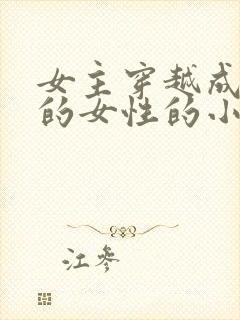 女主穿越成
的女性的小
江参